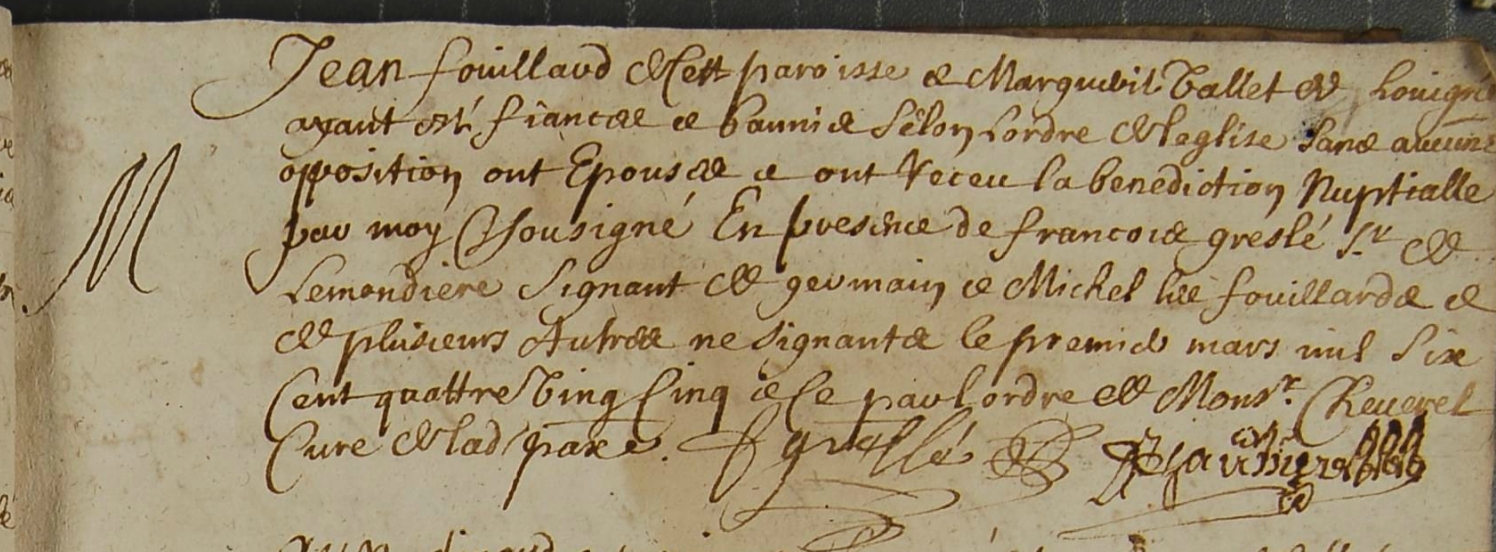 M
Jean fouillard de Cett paroisse & Marguerit Ballet de Louigné
ayant esté fiancés & bannis selon lordre de leglise sans aucune
opposition ont Epousés & ont receu la benediction Nuptialle
par moy Soussigné En presence de francois greslé Sr de
Lemondiere signant de germain & Michel les fouillards &
de plusieurs Autres ne signants le premier mars mil Six
Cent quattre Ving Cinq & Ce par lordre de Monsr. Cheverel
Cure de lad parse.